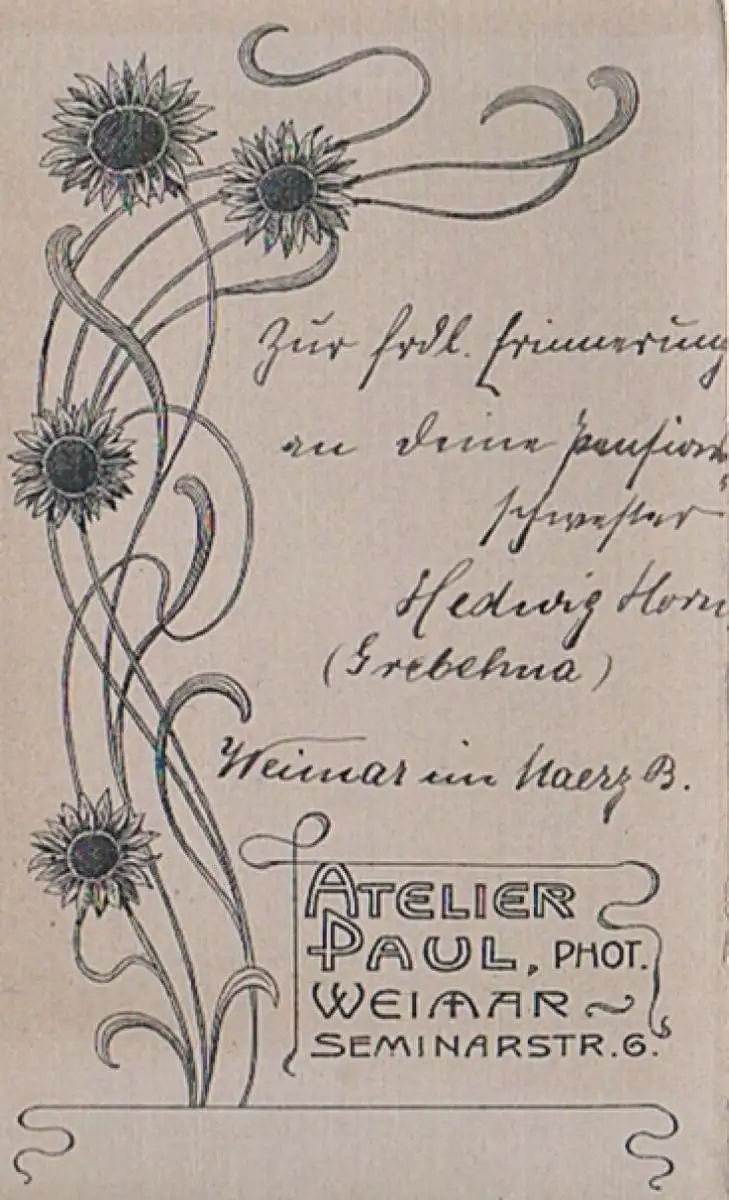 Zur frdl. Erinnerung
an deine Pensions-
schwester
Hedwig Horn
(Grebehna)
Weimar im Maerz
ATELIER
PAUL, PHOT.
WEIMAR ~
SEMINARSTR. 6.